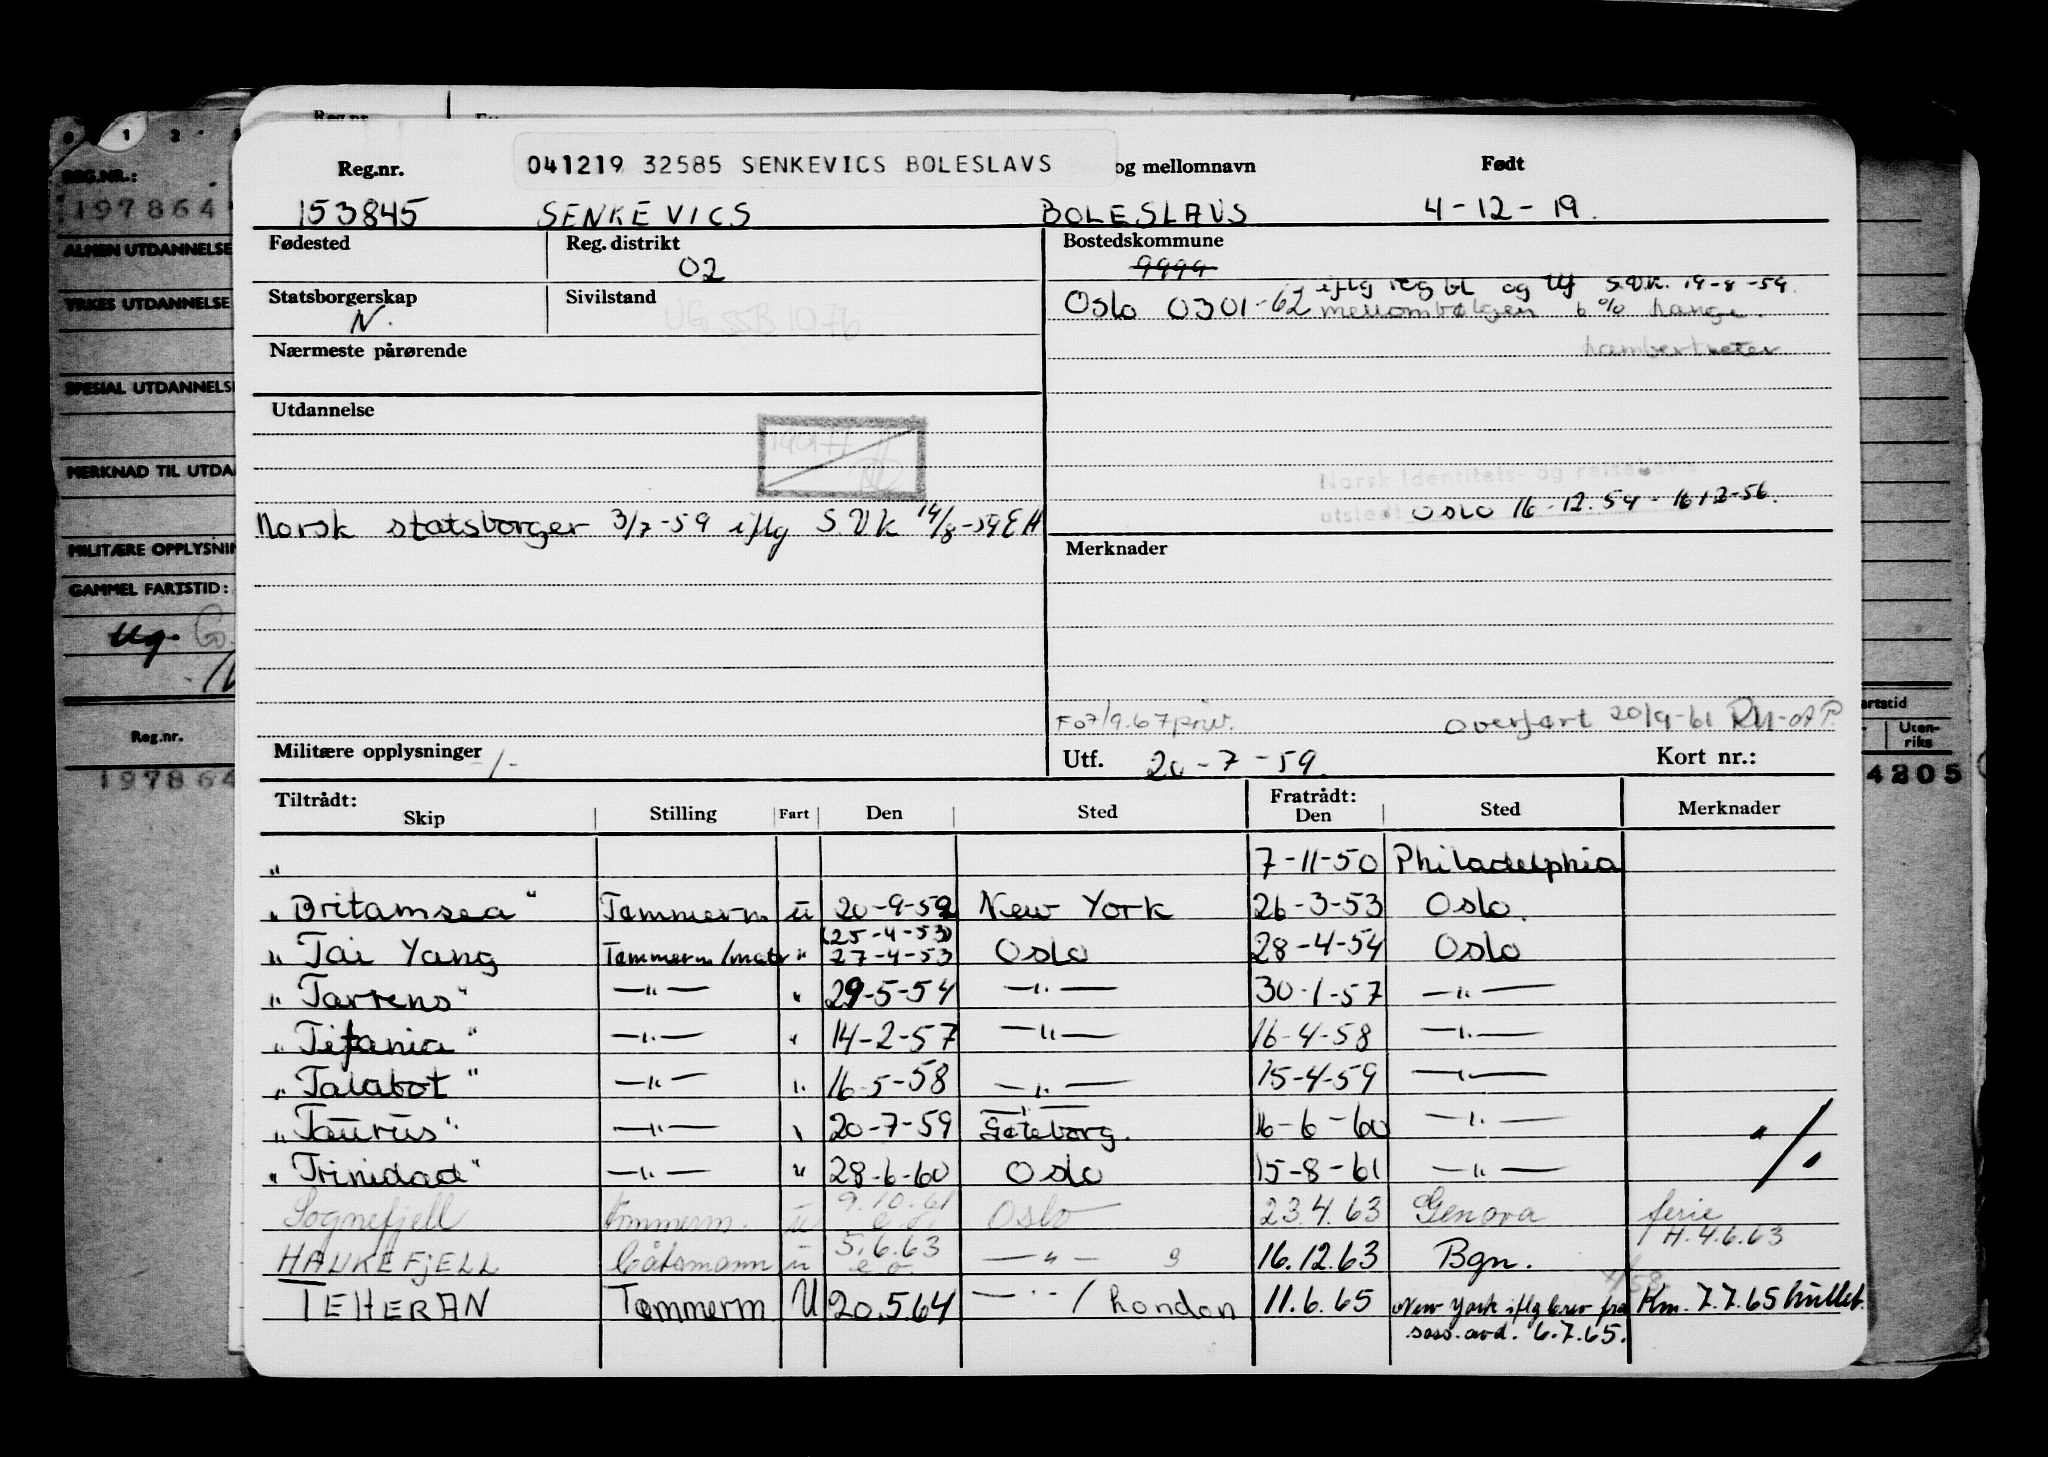 Reg.nr. 041219 32585 SENKEVICS BOLESLAVS og mellomnavn Født
153845 SENKEVICS BOLESLAVS 4-12-19.
Fødested Reg. distrikt Bostedskommune
02 9999
Statsborgerskap Sivilstand Oslo 0301-62 iflg reg bl og Uf S.V.K. 19-8-59.
N. mellombølgen 6 % Lange.
Nærmeste pårørende Lambertseter
Utdannelse
Norsk Identitets- og reisebevis
utstedt Oslo 16-12.54 - 16-12-56.
Norsk statsborger 3/7-59 iflg S.V.K 14/8-59 EH
Merknader
F07/9.67 priv. Overført 20/9-61
Militære opplysninger -/- Utf. 20-7-59. Kort nr.:
Tiltrådt: Fratrådt:
Skip Stilling Fart Den Sted Den Sted Merknader
" 7-11-50 Philadelphia
"Britamsea" Tømmerm u 20-9-52 New York 26-3-53 Oslo.
(25-4-53)
"Tai Yang Tømmerm/matr " 27-4-53 Oslo 28-4-54 Oslo
"Tarrens" —"— " 29-5-54 —"— 30-1-57 —"—
"Titania" —"— " 14-2-57 —"— 16-4-58 —"—
"Talabot" —"— " 16-5-58 —"— 15-4-59 —"—
"Taurus" —"— " 20-7-59 Gøteborg. 16-6-60 —"—
"Trinidad" —"— " 28-6-60 Oslo 15-8-61 —"—
Sognefjell tømmerm. u 9.10.61 e.o. Oslo 23.4.63 Genova ferie
H. 4.6.63
HAUKEFJELL båtsmann u 5.6.63 e.o. —"— 16.12.63 Bgn.
TEHERAN Tømmerm U 20.5.64 —"—/London 11.6.65 New York iflg brev fra Km. 7.7.65 hullet.
sosv. avd. 6.7.65.
REG.NR.:
197864
ALMEN UTDANNELSE
YRKES UTDANNELSE
SPESIAL UTDANNELSE
MERKNAD TIL UTDA
MILITÆRE OPPLYSNIN
GAMMEL FARTSTID:
Ug.
Reg.nr.
197864
artstid
Uten-
riks
4205